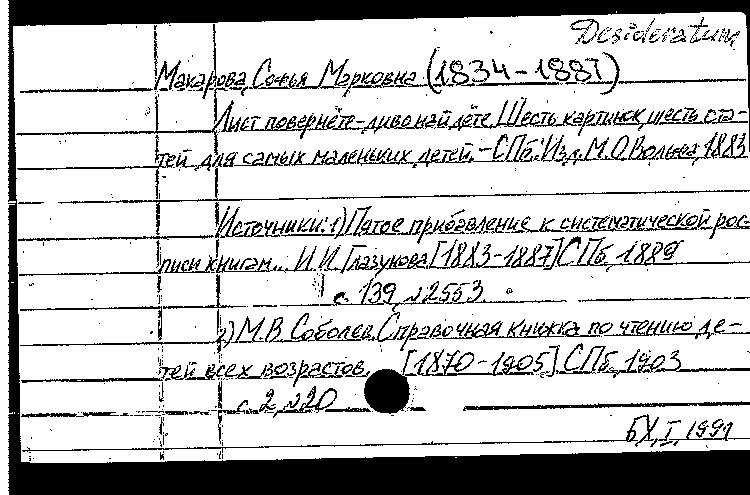 Desideratum
Макарова, Софья Марковна (1834-1887)
Лист повернёте-диво найдёте. Шесть картинок, шесть ста-
тей для самых маленьких детей.-СПб.: Изд. М.О.Вольфа, 1883
Источники: 1) Пятое прибавление к систематической рос-
писи книгам... И.И. Глазунова [1883-1887] СПб, 1889
с. 139, №2553.
2) М.В. Соболев. Справочная книжка по чтению де-
тей всех возрастов. [1870-1905] СПб, 1903
с. 2, №20
БХ, I, 1991